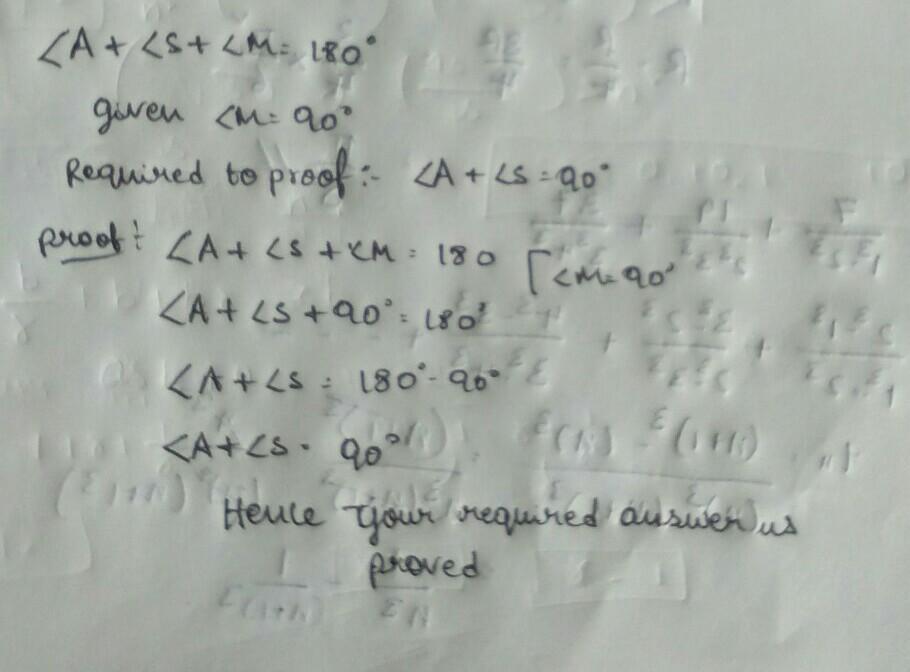 ∠A + ∠S + ∠M = 180°
given ∠M = 90°
Required to proof :- ∠A + ∠S = 90°
proof : ∠A + ∠S + ∠M = 180 [∠M = 90°
∠A + ∠S + 90° = 180°
∠A + ∠S = 180° - 90°
∠A + ∠S = 90°
Hence your required answer is
proved